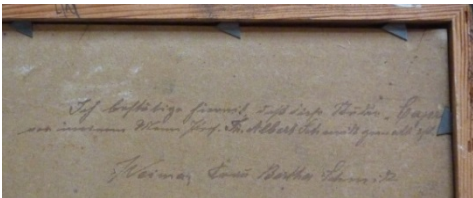 Ich bestätige hiermit, daß diese Studie
von meinem Mann Prof. Th. Albert Schmidt gemalt ist.
Weimar Frau Bertha Schmidt